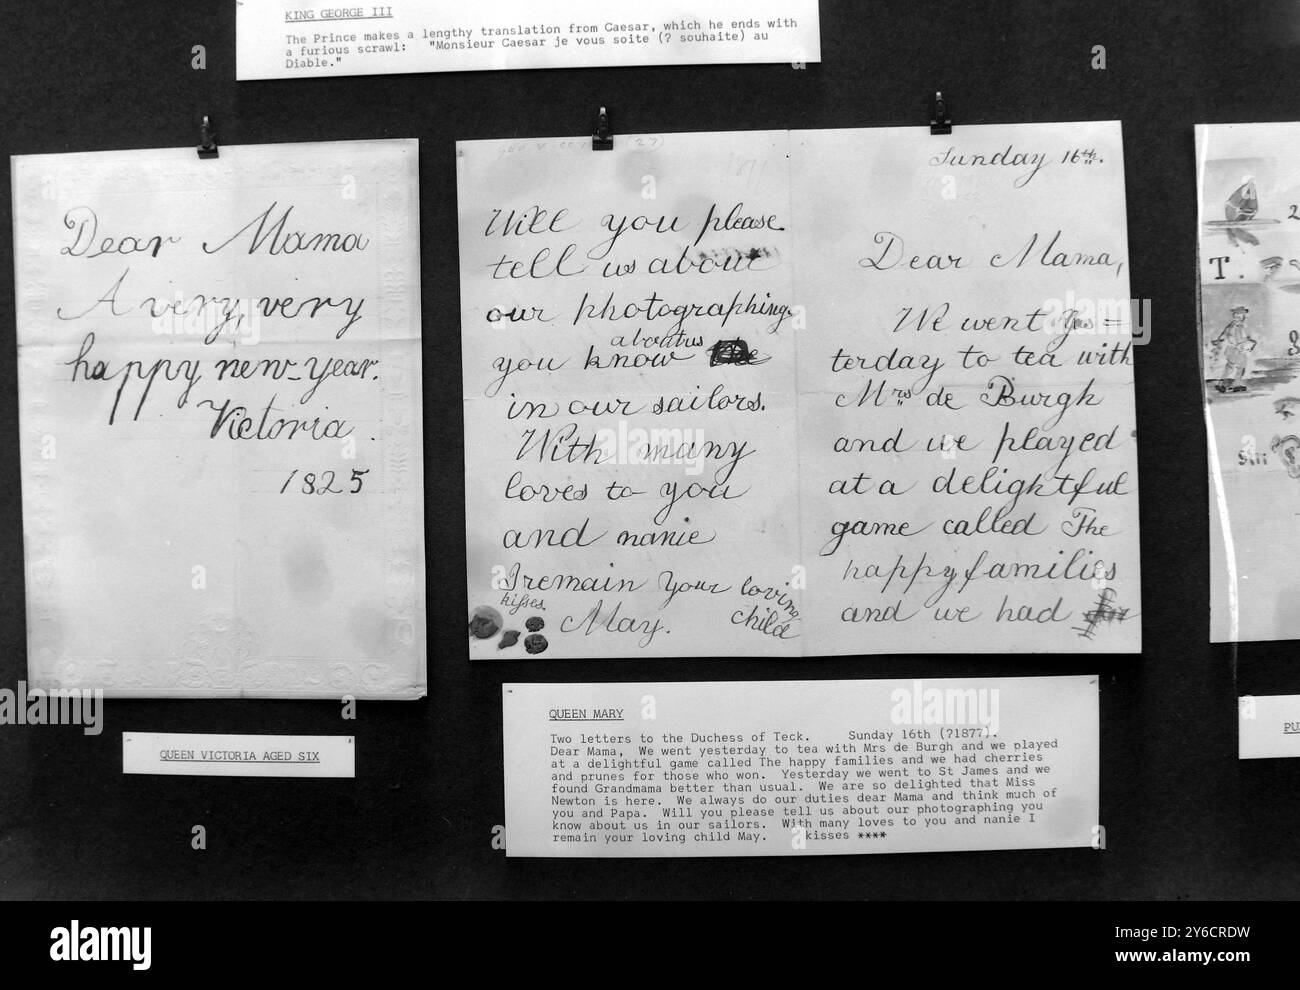 KING GEORGE III
The Prince makes a lengthy translation from Caesar, which he ends with
a furious scrawl: "Monsieur Caesar je vous soite (? souhaite) au
Diable."
Dear Mama
A very, very
happy new-year.
Victoria.
1825
QUEEN VICTORIA AGED SIX
(27)
Will you please
tell us about
our photographing.
you know about us
in our sailors.
With many
loves to you
and nanie
I remain your loving
child
kisses.
May.
Sunday 16th.
Dear Mama,
We went Yes=
terday to tea with
Mrs de Burgh
and we played
at a delightful
game called The
happy families
and we had
QUEEN MARY
Two letters to the Duchess of Teck. Sunday 16th (?1877).
Dear Mama, We went yesterday to tea with Mrs de Burgh and we played
at a delightful game called The happy families and we had cherries
and prunes for those who won. Yesterday we went to St James and we
found Grandmama better than usual. We are so delighted that Miss
Newton is here. We always do our duties dear Mama and think much of
you and Papa. Will you please tell us about our photographing you
know about us in our sailors. With many loves to you and nanie I
remain your loving child May. kisses ****
2
T.
PU
alamy
Image ID: 2Y6CRDW
www.alamy.com